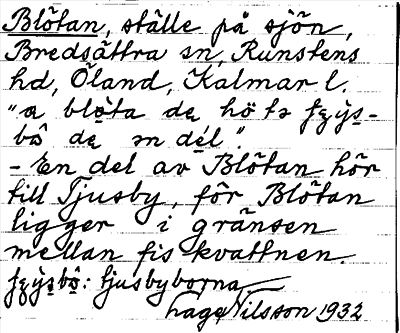 Blötan, ställe på sjön,
Bredsättra sn, Runstens
hd, Öland, Kalmar l.
"a blöta dę hö tə fęys-
bô dę ən dél".
- En del av Blötan hör
till Tjusby, för Blötan
ligger i gränsen
mellan fiskvattnen.
fęysbô: tjusbyborna
Hage Nilsson 1932